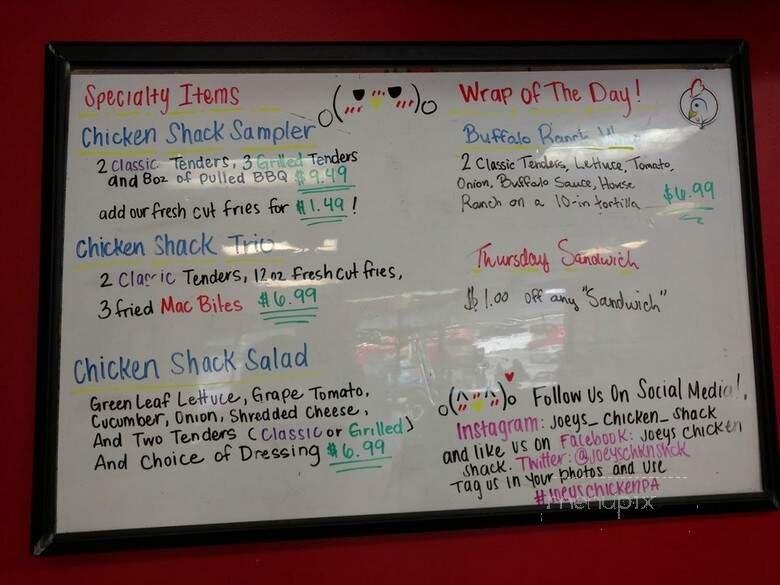 Specialty Items
Chicken Shack Sampler
2 Classic Tenders, 3 Grilled Tenders
and 8oz of pulled BBQ $9.49
add our fresh cut fries for $1.49!
Chicken Shack Trio
2 Classic Tenders, 12oz Fresh cut fries,
3 fried Mac Bites $6.99
Chicken Shack Salad
Green Leaf Lettuce, Grape Tomato,
Cucumber, Onion, Shredded Cheese,
And Two Tenders (Classic or Grilled)
And Choice of Dressing $6.99
Wrap of The Day!
Buffalo Ranch
2 Classic Tenders, Lettuce, Tomato,
Onion, Buffalo Sauce, House
Ranch on a 10-in tortilla $6.99
Thursday Sandwich
$1.00 off any "Sandwich"
Follow Us On Social Media!
Instagram: joeys_chicken_shack
and like us on Facebook: joeys chicken
shack. Twitter: @joeyschknshck
Tag us in your photos and use
#joeyschickenPA
TheMapix